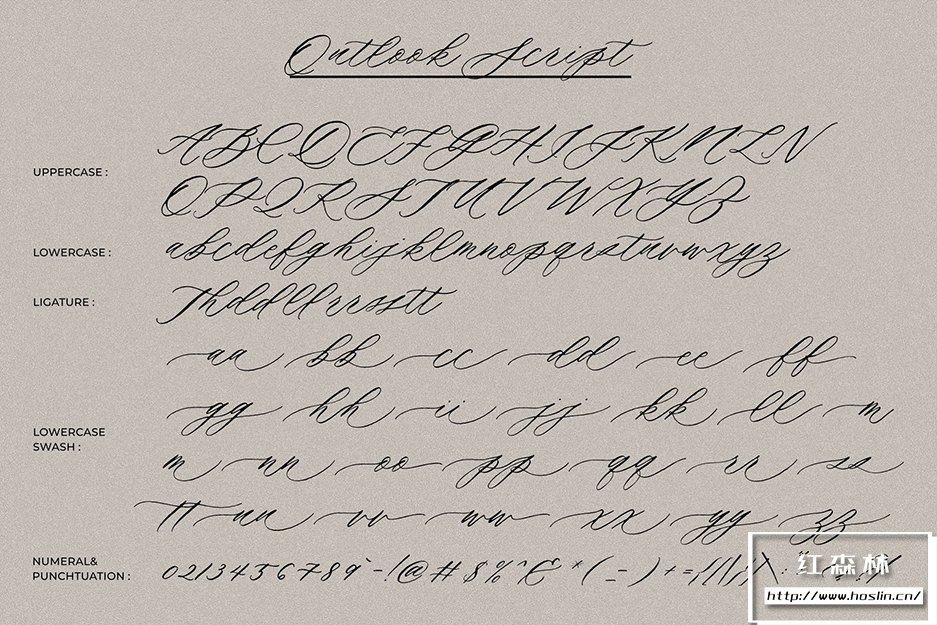 Outlook Script
UPPERCASE :
A B C D E F G H I J K M L N
O P Q R S T U V W X Y Z
LOWERCASE :
a b c d e f g h i j k l m n o p q r s t u v w x y z
LIGATURE :
Th dd ll rr ss tt
LOWERCASE
SWASH :
a a b b c c d d e e f f
g g h h i i j j k k l l m
m n n o o p p q q r r s s
t t u u v v w w x x y y z z
NUMERAL&
PUNCHTUATION :
0 2 1 3 4 5 6 7 8 9 ` - ! @ # $ % ^ & * ( _ - ) + =
红森林
http://www.hoslin.cn/